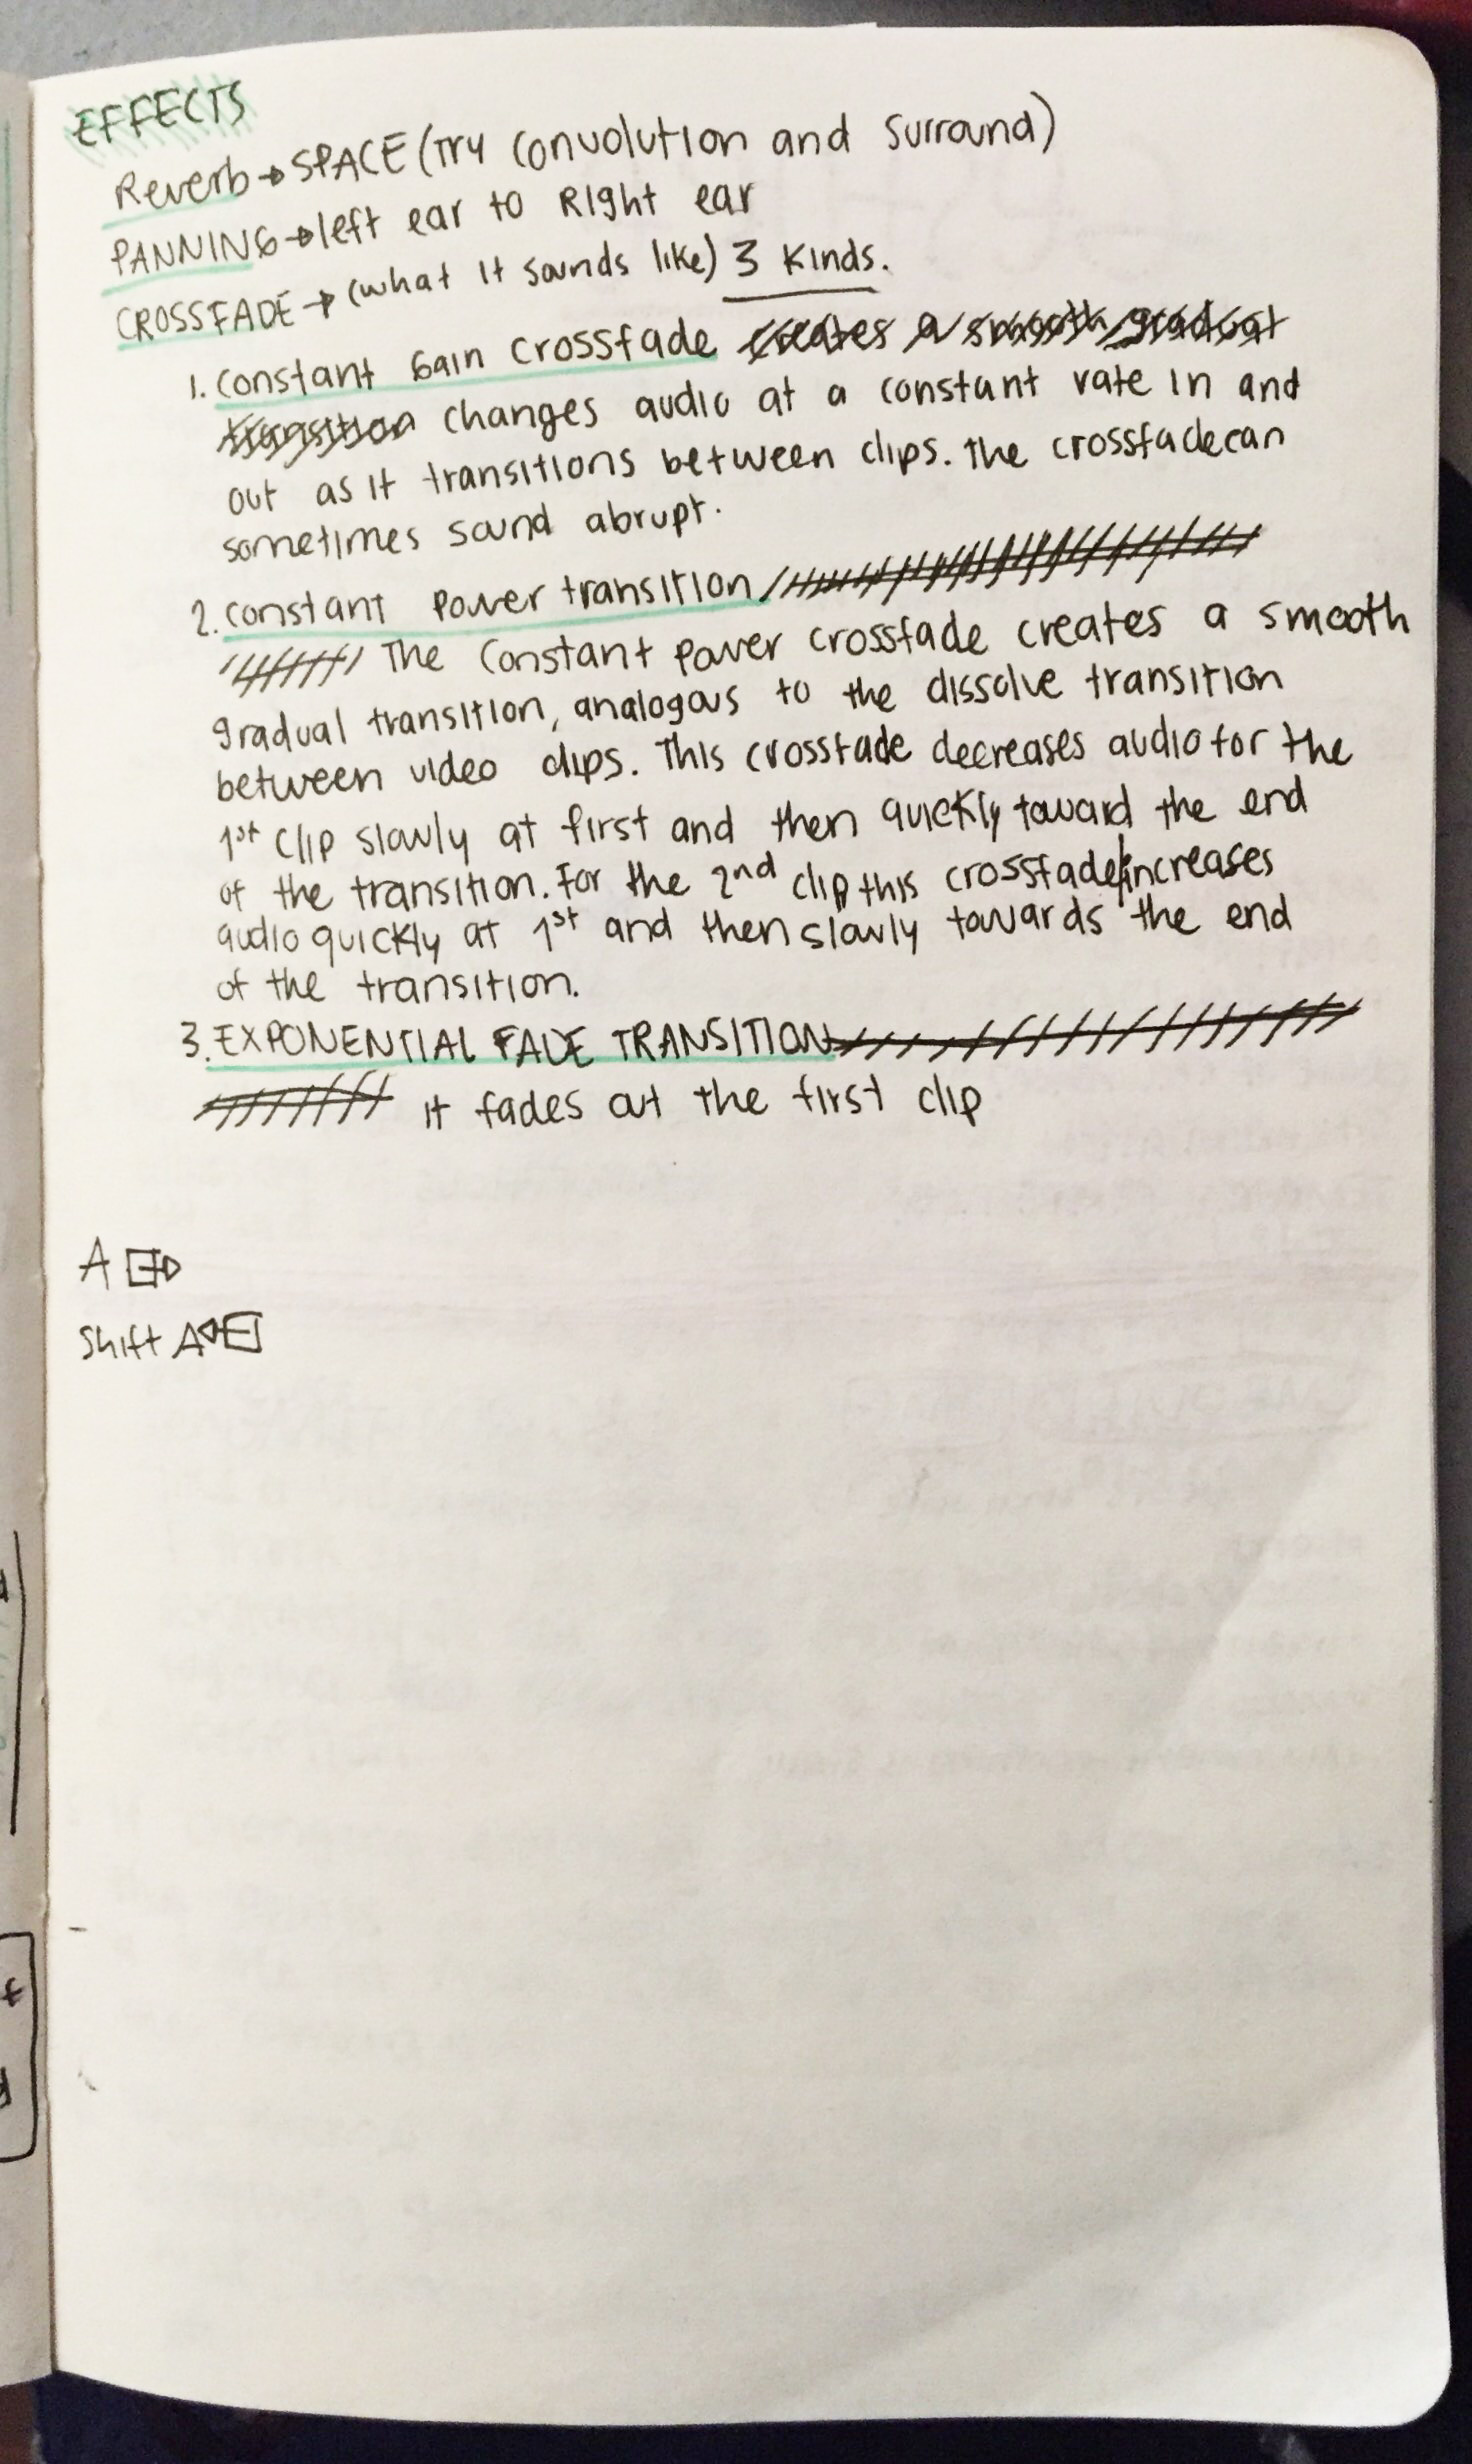 EFFECTS
Reverb → SPACE (Try Convolution and Surround)
PANNING → left ear to Right ear
CROSSFADE → (what it sounds like) 3 Kinds.
1. Constant Gain Crossfade creates a smooth gradual
transition changes audio at a constant rate in and
out as it transitions between clips. The crossfade can
sometimes sound abrupt.
2. constant power transition
The Constant Power crossfade creates a smooth
gradual transition, analogous to the dissolve transition
between video clips. This crossfade decreases audio for the
1st clip slowly at first and then quickly toward the end
of the transition. For the 2nd clip this crossfade increases
audio quickly at 1st and then slowly towards the end
of the transition.
3. EXPONENTIAL FADE TRANSITION
it fades out the first clip
A
Shift A